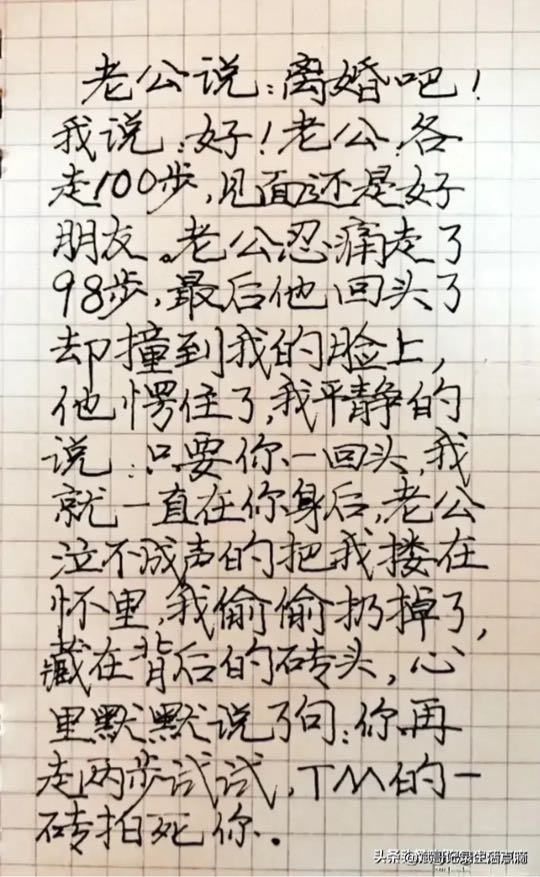 老公说:离婚吧!
我说:好!老公.各
走100步,见面还是好
朋友。老公忍痛走了
98步,最后他回头了
却撞到我的脸上,
他愣住了,我平静的
说:只要你一回头,我
就一直在你身后,老公
泣不成声的把我搂在
怀里,我偷偷扔掉了,
藏在背后的砖头,心
里默默说了句:你再
走两步试试,TM的一
砖拍死你.
头条